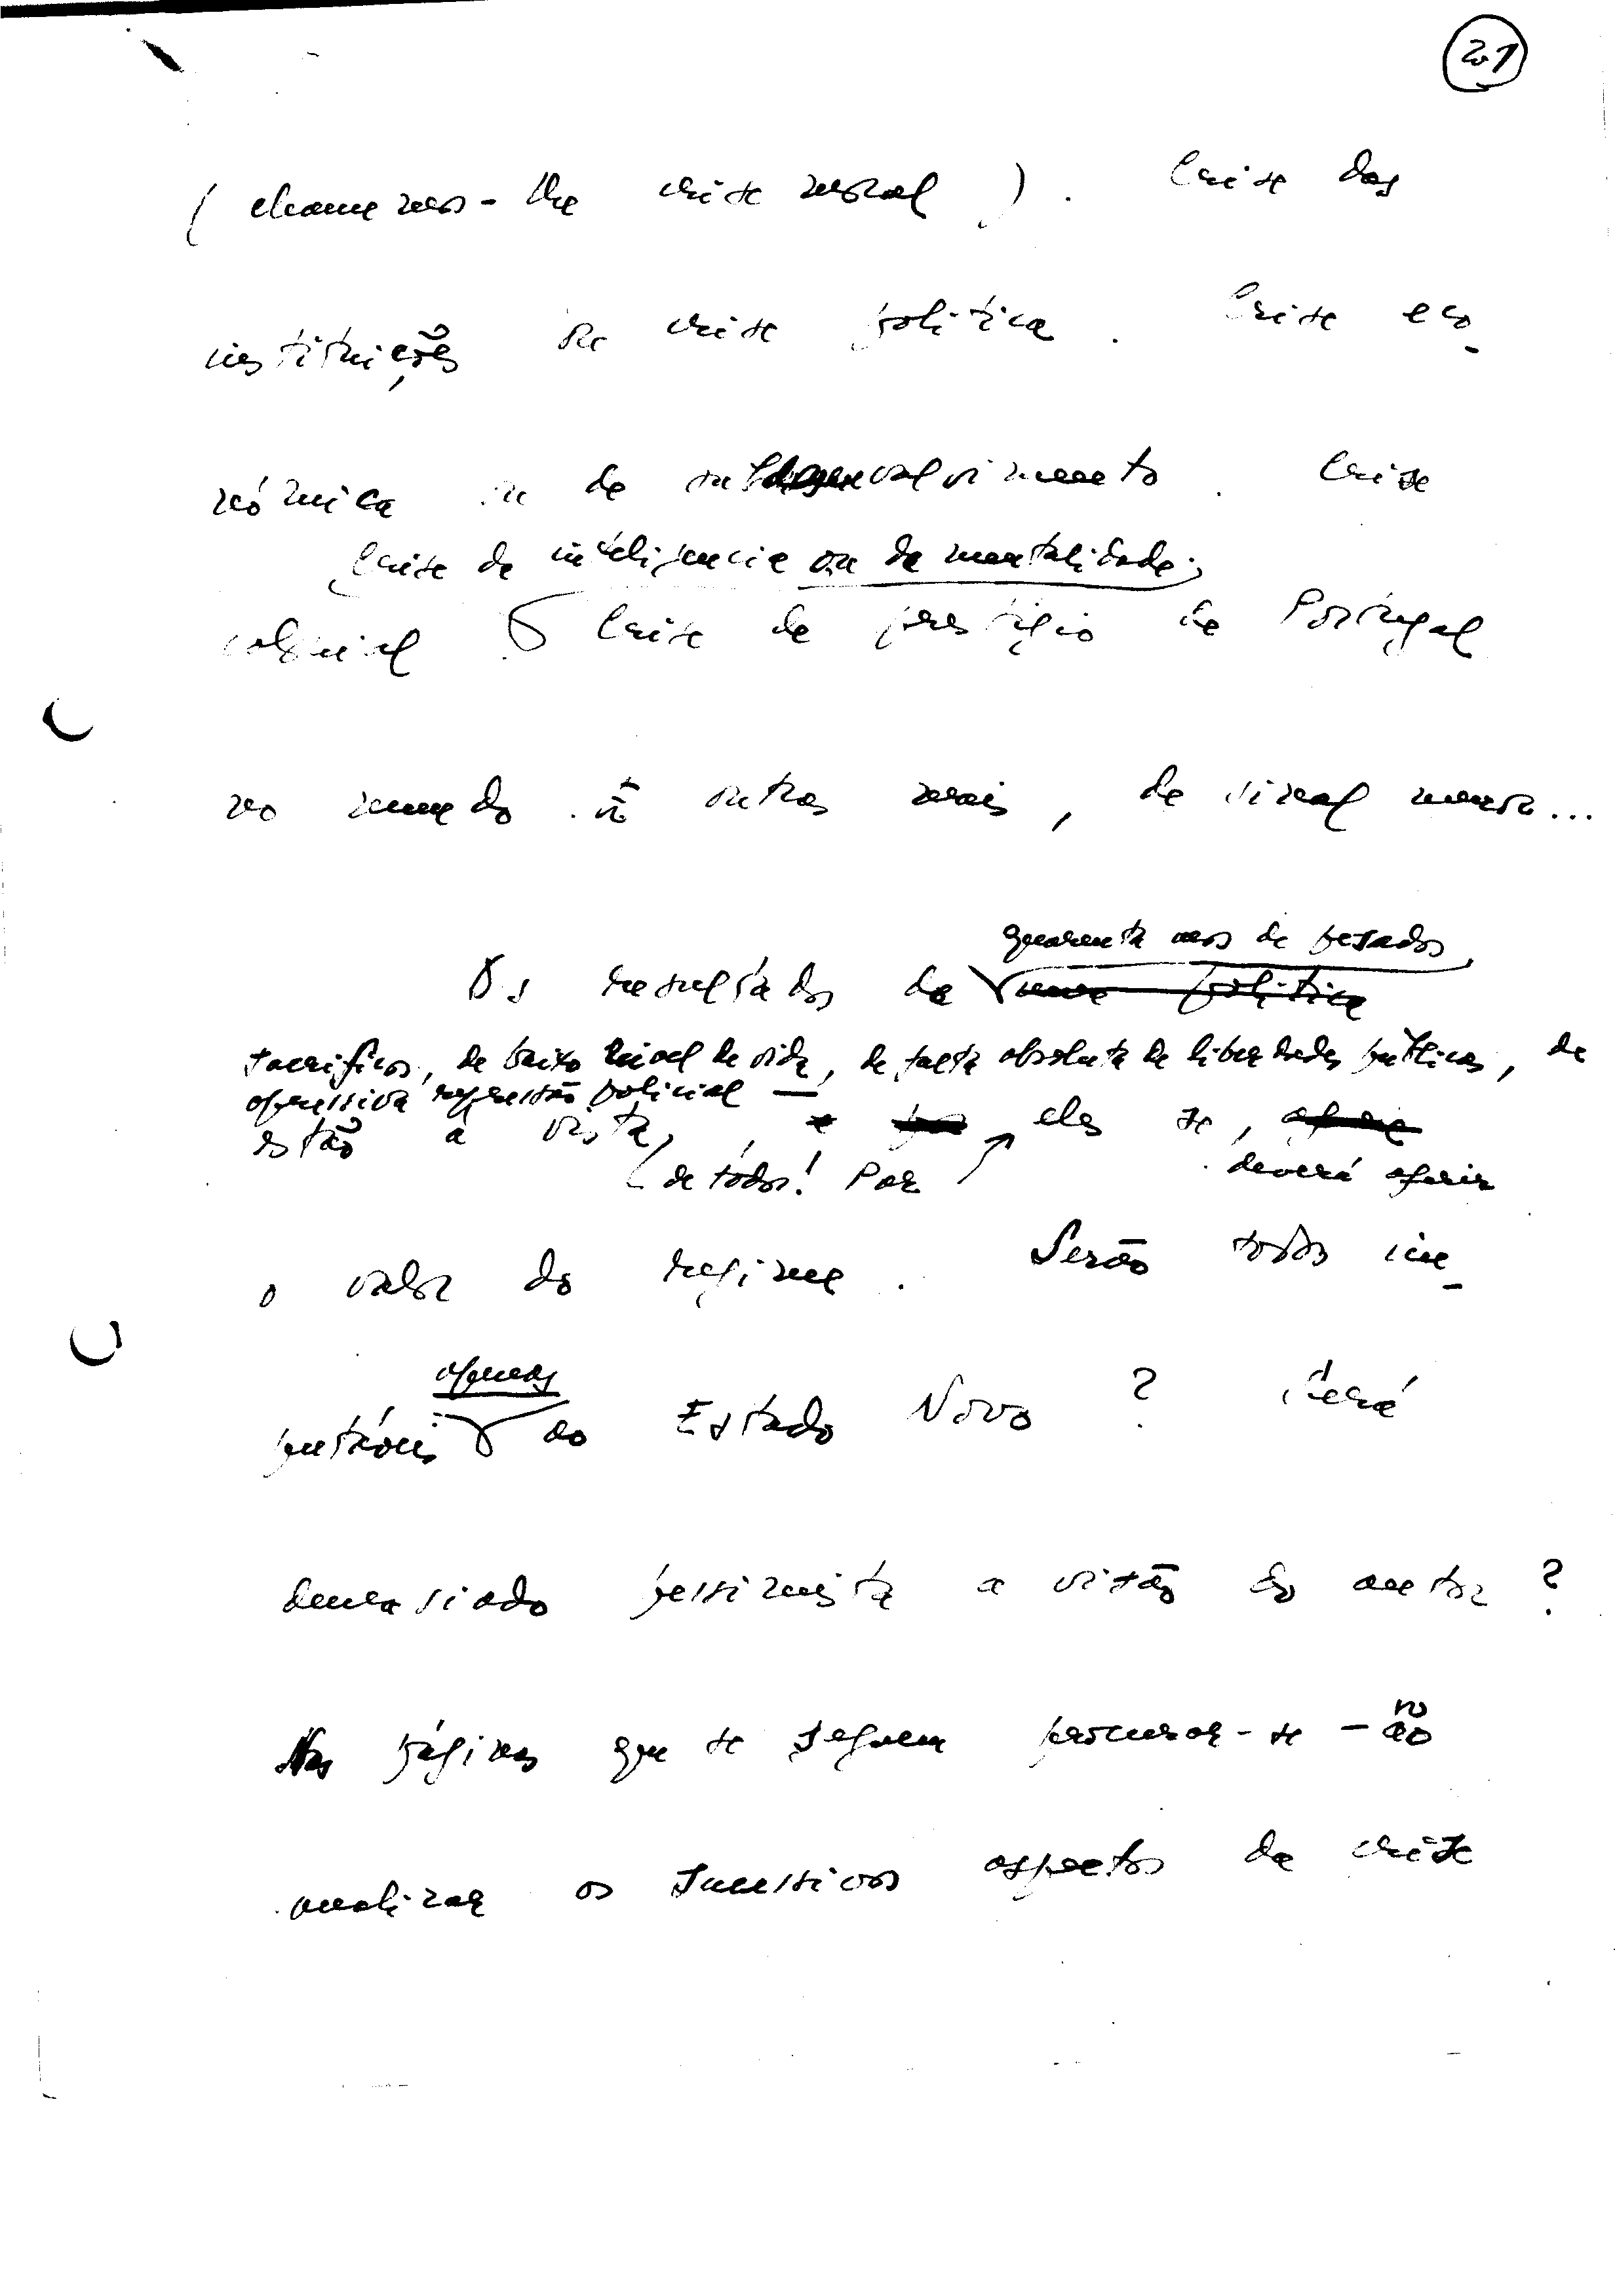 21
(chamemos-lhe crise moral). Crise das
instituições ou crise política. Crise eco-
nómica ou de subdesenvolvimento. Crise
Crise de inteligencia ou de mentalidade;
colonial Crise de prestígio de Portugal
no mundo. E outras mais, de sinal menor...
quarenta anos de pesados
Os resultados de uma política
sacrificios, de baixo nivel de vida, de falta absoluta de liberdades publicas, de
opressiva repressão policial —
estão à vista, e por eles se, afere
de todos! Por deverá aferir
o valor do regime. Serão todos im-
apenas
putáveis ao Estado Novo? Será
demasiado pessimista a visão do autor?
Nas páginas que se seguem procurar-se-ão
analizar os sucessivos aspectos da crise